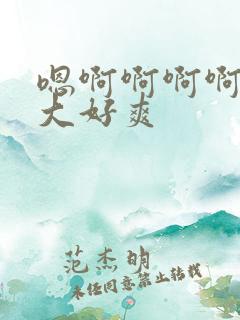 嗯啊啊啊啊
大好爽
范杰明
未经同意禁止转载